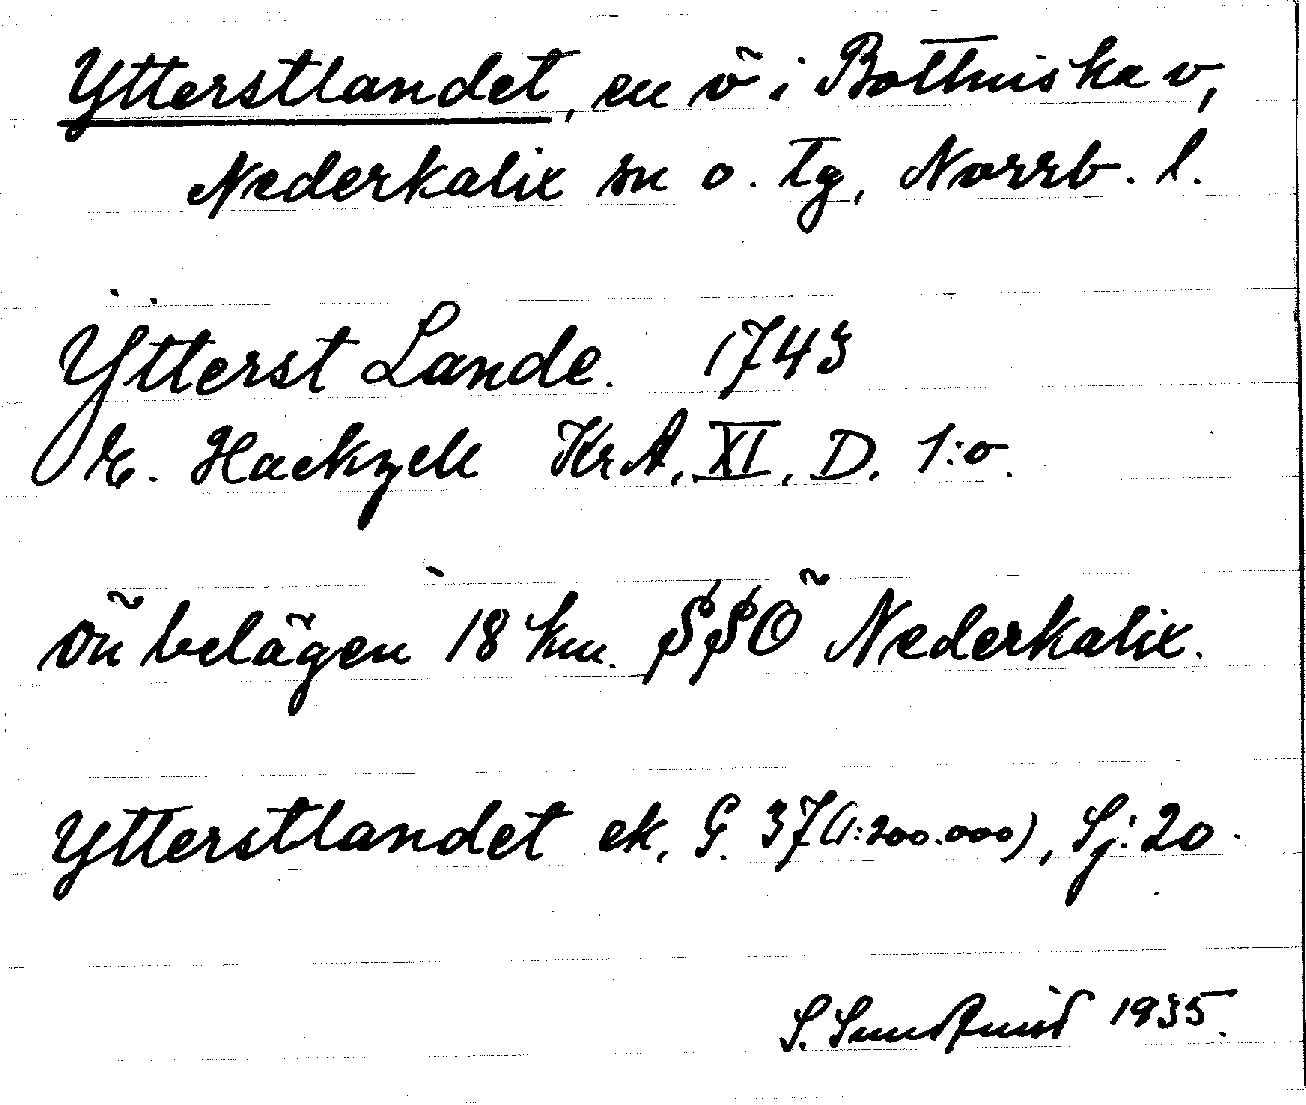 Ytterstlandet, en ö i Bottniska v,
Nederkalix sn o. tg, Norrb. l.
Ÿtterst Lande. 1743
E. Hackzell KrA, XI, D. 1:o.
ön belägen 18 km. SSÖ Nederkalix.
Ytterstlandet ek, G. 37 (1:200.000), Sj: 20.
S. Sundqvist 1935.